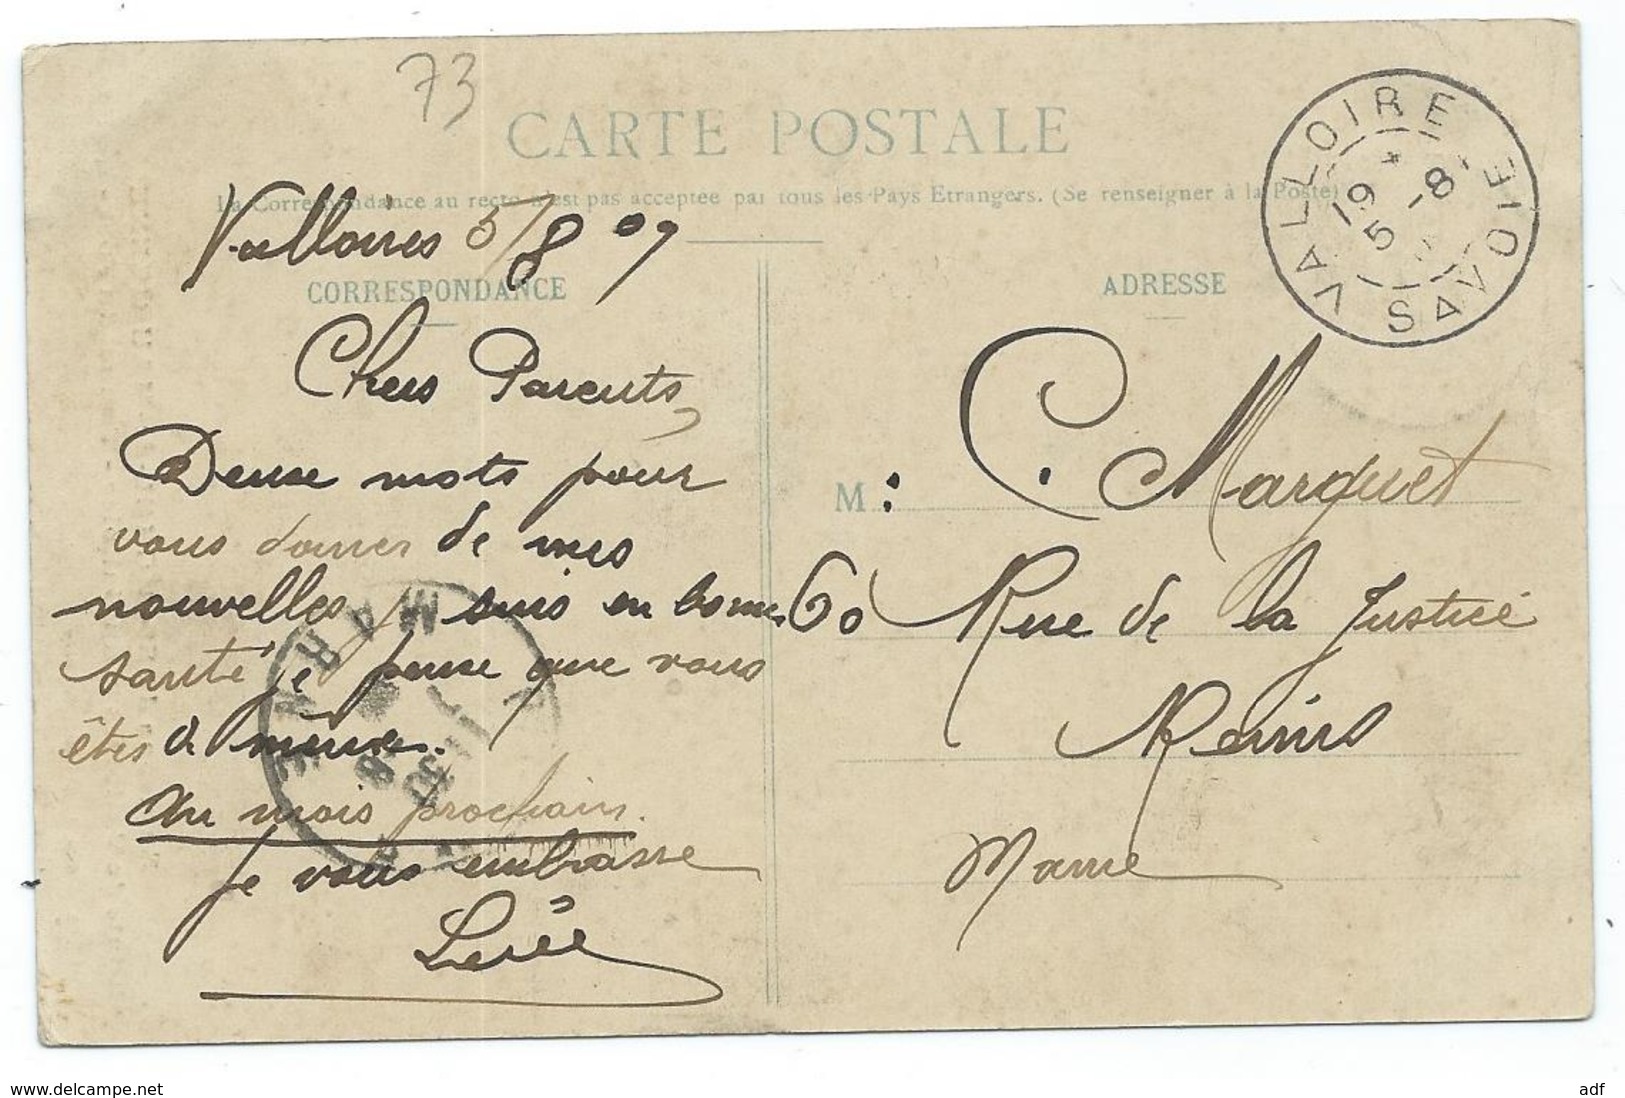 73
CARTE POSTALE
La Correspondance au recto n'est pas acceptée par tous les Pays Etrangers. (Se renseigner à la Poste)
Valloires 5/8 09
CORRESPONDANCE
Chers Parents,
Deux mots pour
vous donner de mes
nouvelles je suis en bonne
santé je pense que vous
êtes de même.
Au mois prochain.
Je vous embrasse
ADRESSE
M : C. Marquet
60 Rue de la Justice
Reims
Marne
VALLOIRE SAVOIE
19
5 -8
MARNE
www.delcampe.net
adf